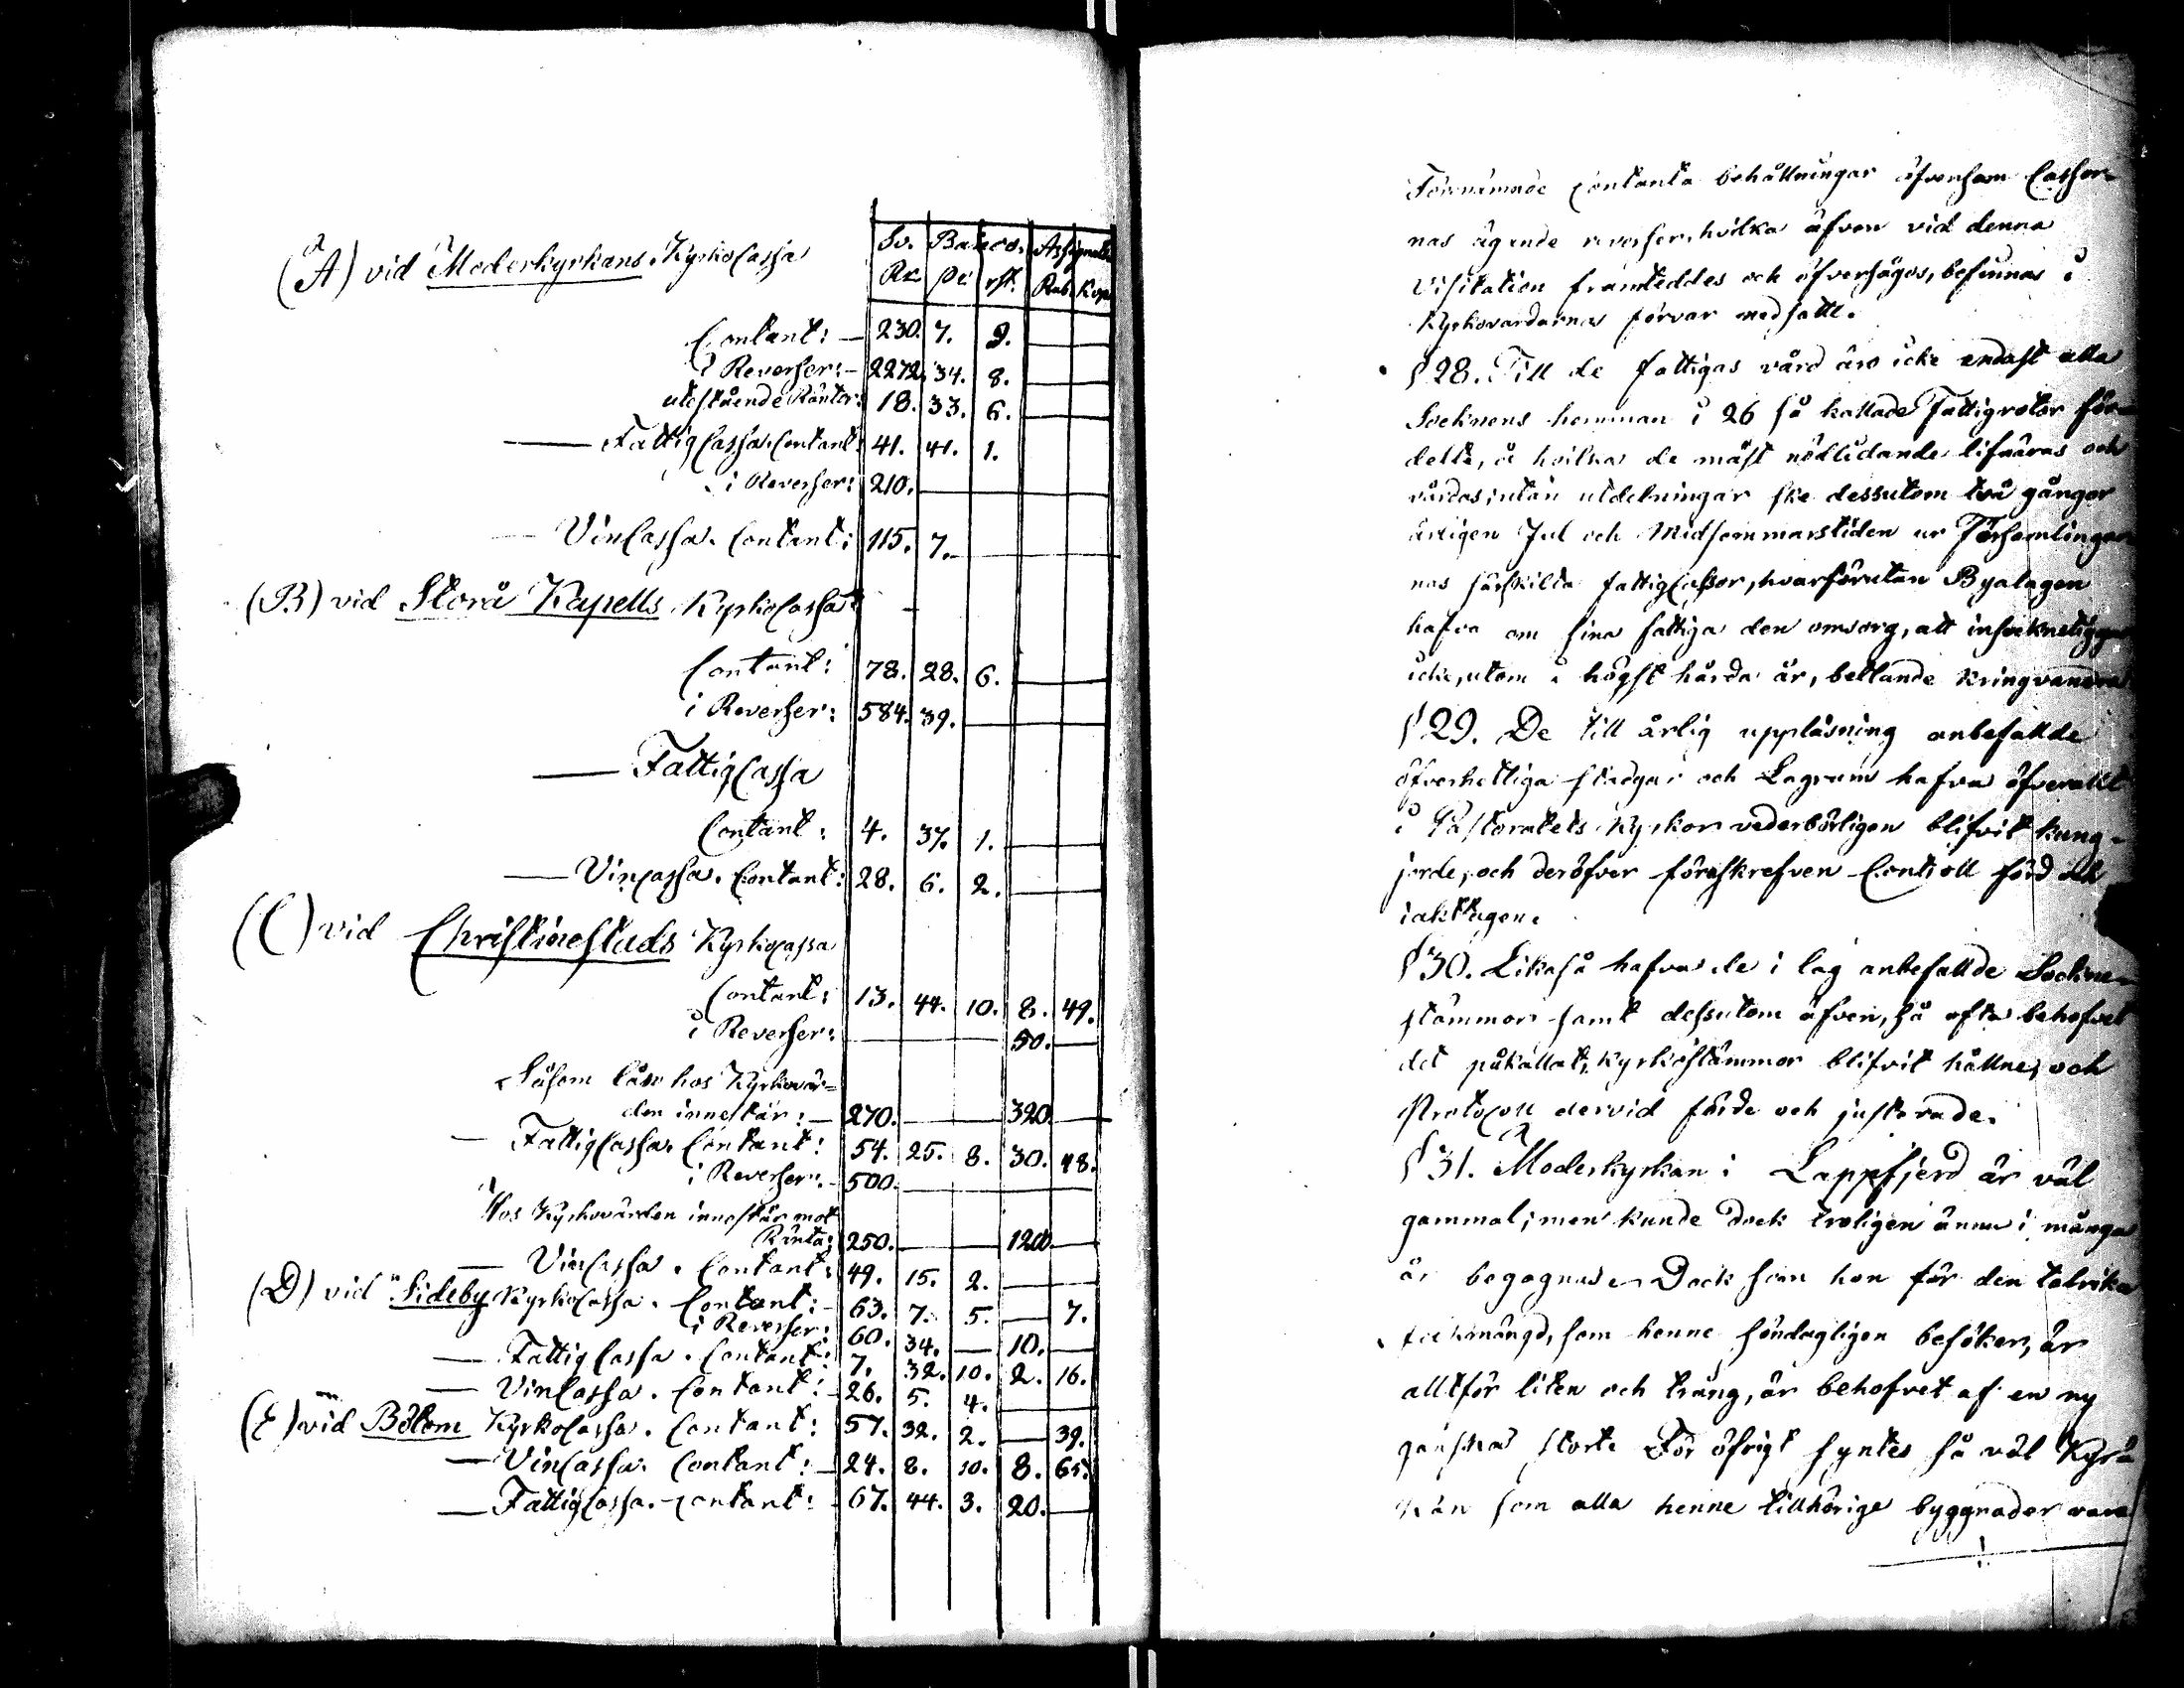 Sv. Banco. Assignatr
(A) vid Moderkyrkans Kyrkocassa Rd. sk. rst. Rub. Kop.
Contant: — 230. 7. 9.
i Reverser: — 2272. 34. 8.
utestående Räntor: 18. 33. 6.
— Fattigcassa. Contant: 41. 41. 1.
i Reverser: 210.
— Vincassa. Contant: 115. 7.
(B) vid Storå Kapells Kyrkocassa
Contant: 78. 28. 6.
i Reverser: 584. 39.
— Fattigcassa
Contant: 4. 37. 1.
— Vincassa. Contant: 28. 6. 2.
(C) vid Christinestads Kyrkocassa
Contant: 13. 44. 10. 8. 49.
i Reverser: 50.
Såsom lån hos Kyrkovär-
den innestår: — 270. 320.
— Fattigcassa. Contant: 54. 25. 8. 30. 48.
i Reverser: 500.
Hos Kyrkovärden innestår mot
Ränta: 250. 1200
— Vincassa. Contant: 49. 15. 2.
(D) vid Sideby Kyrkocassa. Contant: — 63. 7. 5. — 7.
i Reverser: 60. 34. — 10. —
— Fattigcassa. Contant: 7. 32. 10. 2. 16.
— Vincassa. Contant: — 26. 5. 4.
(E) vid Bötom Kyrkocassa. Contant: 57. 32. 2. — 39.
— Vincassa. Contant: — 24. 8. 10. 8. 65.
— Fattigcassa. Contant: — 67. 44. 3. 20. —
Förenämnde contanta behållningar äfvensom Casser-
nas ägande reverser, hvilka äfven vid denna
Visitation framteddes och öfversågos, befinnas i
Kyrkovärdarnas förvar nedsatte.
§ 28. Till de fattigas vård äro icke endast alla
Socknens hemman i 26 så kallade Fattigrotar för-
delte, å hvilka de mäst nödlidande lifnäras och
vårdas, utan utdelningar ske dessutom två gånger
årligen Jul och Midsommarstiden ur Församlingar-
nas särskilta fattigcassor, hvarförutan Byalagen
hafva om sina fattiga den omsorg, att insocknetiggare
icke, utom i högst hårda år, bettlande kringvandra
§ 29. De till årlig uppläsning anbefallde
öfverhetliga stadgar och Lagrum hafva öfverallt
i Pastoratets Kyrkor vederbörligen blifvit kung-
jorde, och deröfver föreskrefven Controll förd och
iakttagen.
§ 30. Likaså hafva de i lag anbefallde Sockne-
stämmor samt dessutom äfven, så ofta behofvet
det påkallat, Kyrkostämmor blifvit hållne, och
Protocoll dervid förde och justerade.
§ 31. Moderkyrkan i Lappfjerd är väl
gammal; men kunde dock troligen ännu i många
år begagnas. Dock som hon för den talrika
folkmängd, som henne söndagligen besöker, är
alltför liten och trång, är behofvet af en ny
ganska stort. För öfrigt syntes så väl Kyr-
kan som alla henne tillhörige byggnader vara